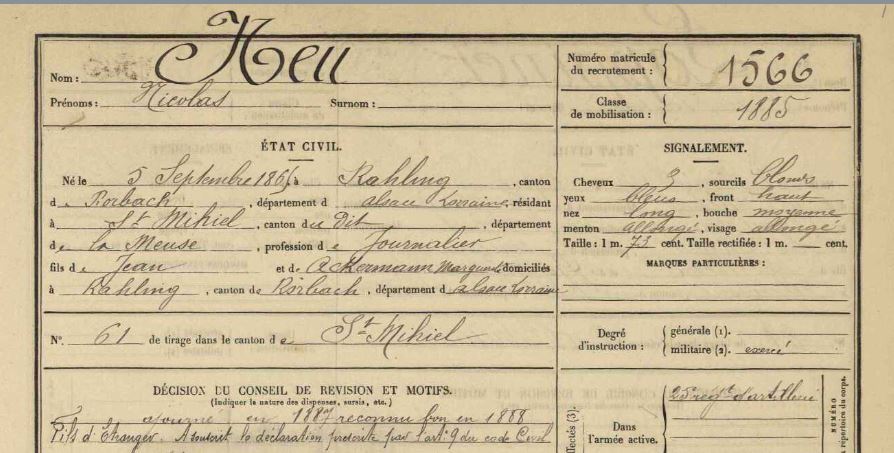 Nom : Heu
Prénoms : Nicolas Surnom :
Numéro matricule du recrutement : 1566
Classe de mobilisation : 1885
ÉTAT CIVIL.
Né le 5 Septembre 1866, à Rahling, canton
de Rorbach, département d'alsace Lorraine, résidant
à St Mihiel, canton du Dit, département
de la Meuse, profession de Journalier
fils de Jean et de Ackermann domiciliés
à Rahling, canton de Rorbach, département d'alsace Lorraine
N° 61 de tirage dans le canton de St Mihiel
SIGNALEMENT.
Cheveux , sourcils blonds
yeux bleus, front haut
nez long, bouche moyenne
menton allongé, visage allongé
Taille : 1 m. 73 cent. Taille rectifiée : 1 m. cent.
MARQUES PARTICULIÈRES :
Degré d'instruction : générale (1).
militaire (2). exercé
DÉCISION DU CONSEIL DE REVISION ET MOTIFS.
(Indiquer la nature des dispenses, sursis, etc.)
ajourné en 1887 reconnu bon en 1888
Fils d'Etranger. A souscrit la déclaration prescrite par l'art. 9 du code Civil
Dans l'armée active.
25e régt d'artillerie
NUMÉRO
répertoire du corps.